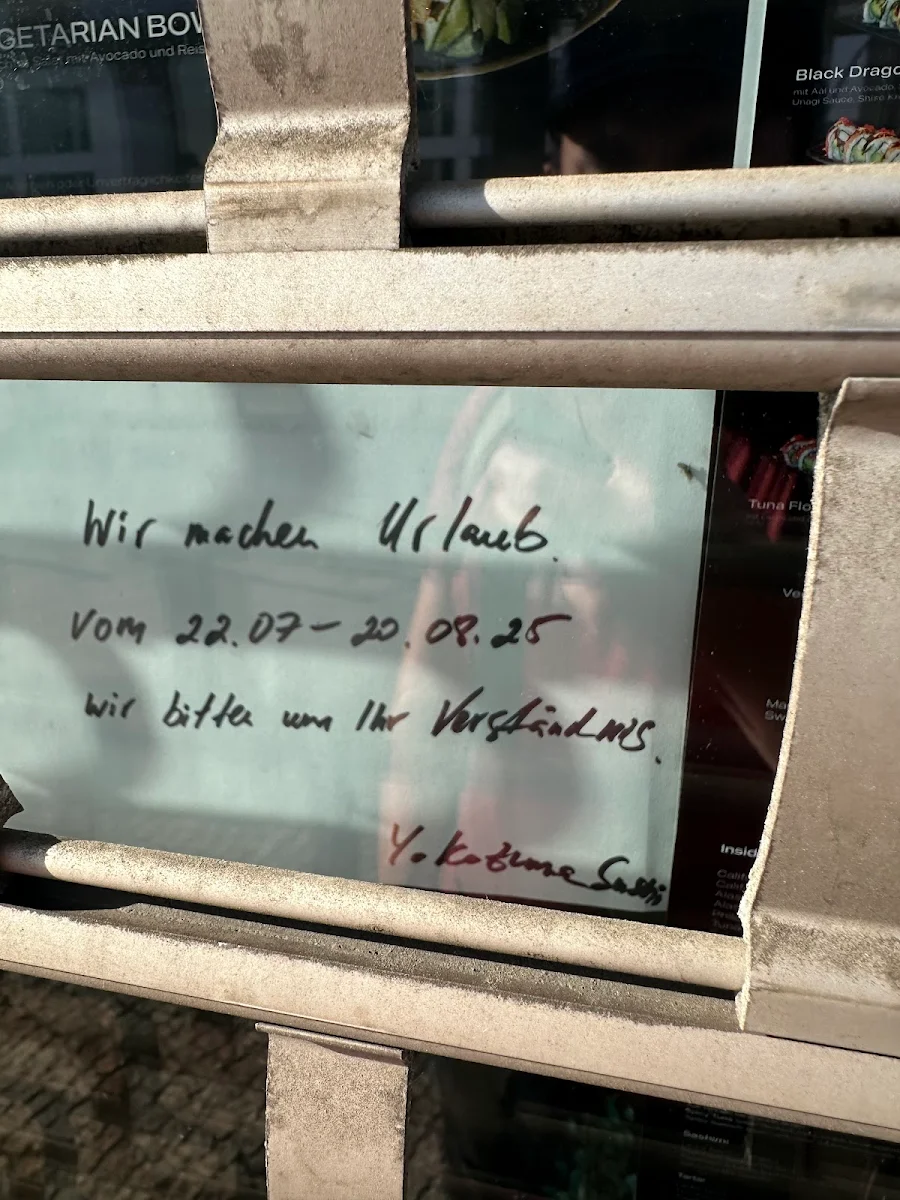 GETARIAN BOW
mit Avocado und Reis
Black Drago
mit Aal und Avocado,
Unagi Sauce, Shiso Kr
Wir machen Urlaub.
Vom 22.07 – 20.08.25
Tuna Flo
Ve
wir bitten um Ihr Verständnis.
Ma
Sw
Yokozuna Sushi
Insid
Calif
Calif
Ala
Ala
Pra
Tun
Sashimi
Tartar